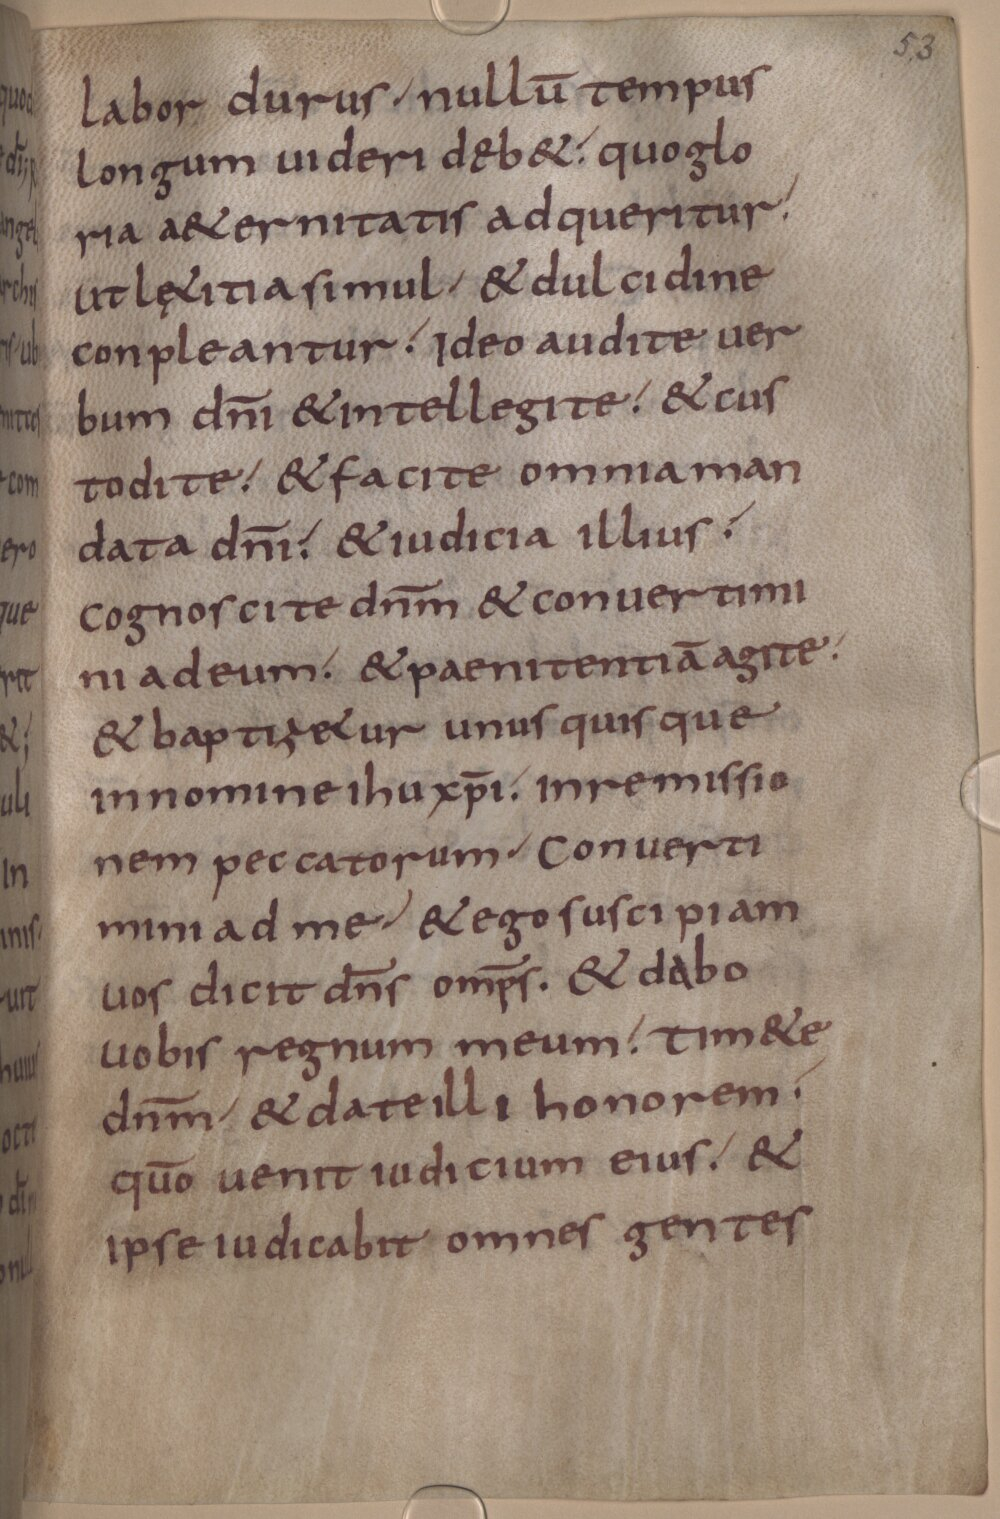 53
labor durus, nullū tempus
longum uideri dęb&; quoglo
ria a&ernitatis adqueritur;
utlę&itia simul, & dulcidine
conpleantur; Ideo audite uer
bum dn̄i &intellegite; & cus
todite; & facite omnia man
data dn̄i; & iudicia illius;
cognoscite dn̄m & conuertimi
ni ad eum; & paenitentiā agite;
& baptiz&ur unusquisque
in nomine ihu xp̄i; in remissio
nem peccatorum, Conuerti
mini ad me, & ego suscipiam
uos dicit dn̄s omp̄s. & dabo
uobis regnum meum; tim&e
dn̄m, & date illi honorem;
quō uenit iudicium eius; &
ipse iudicabit omnes gentes